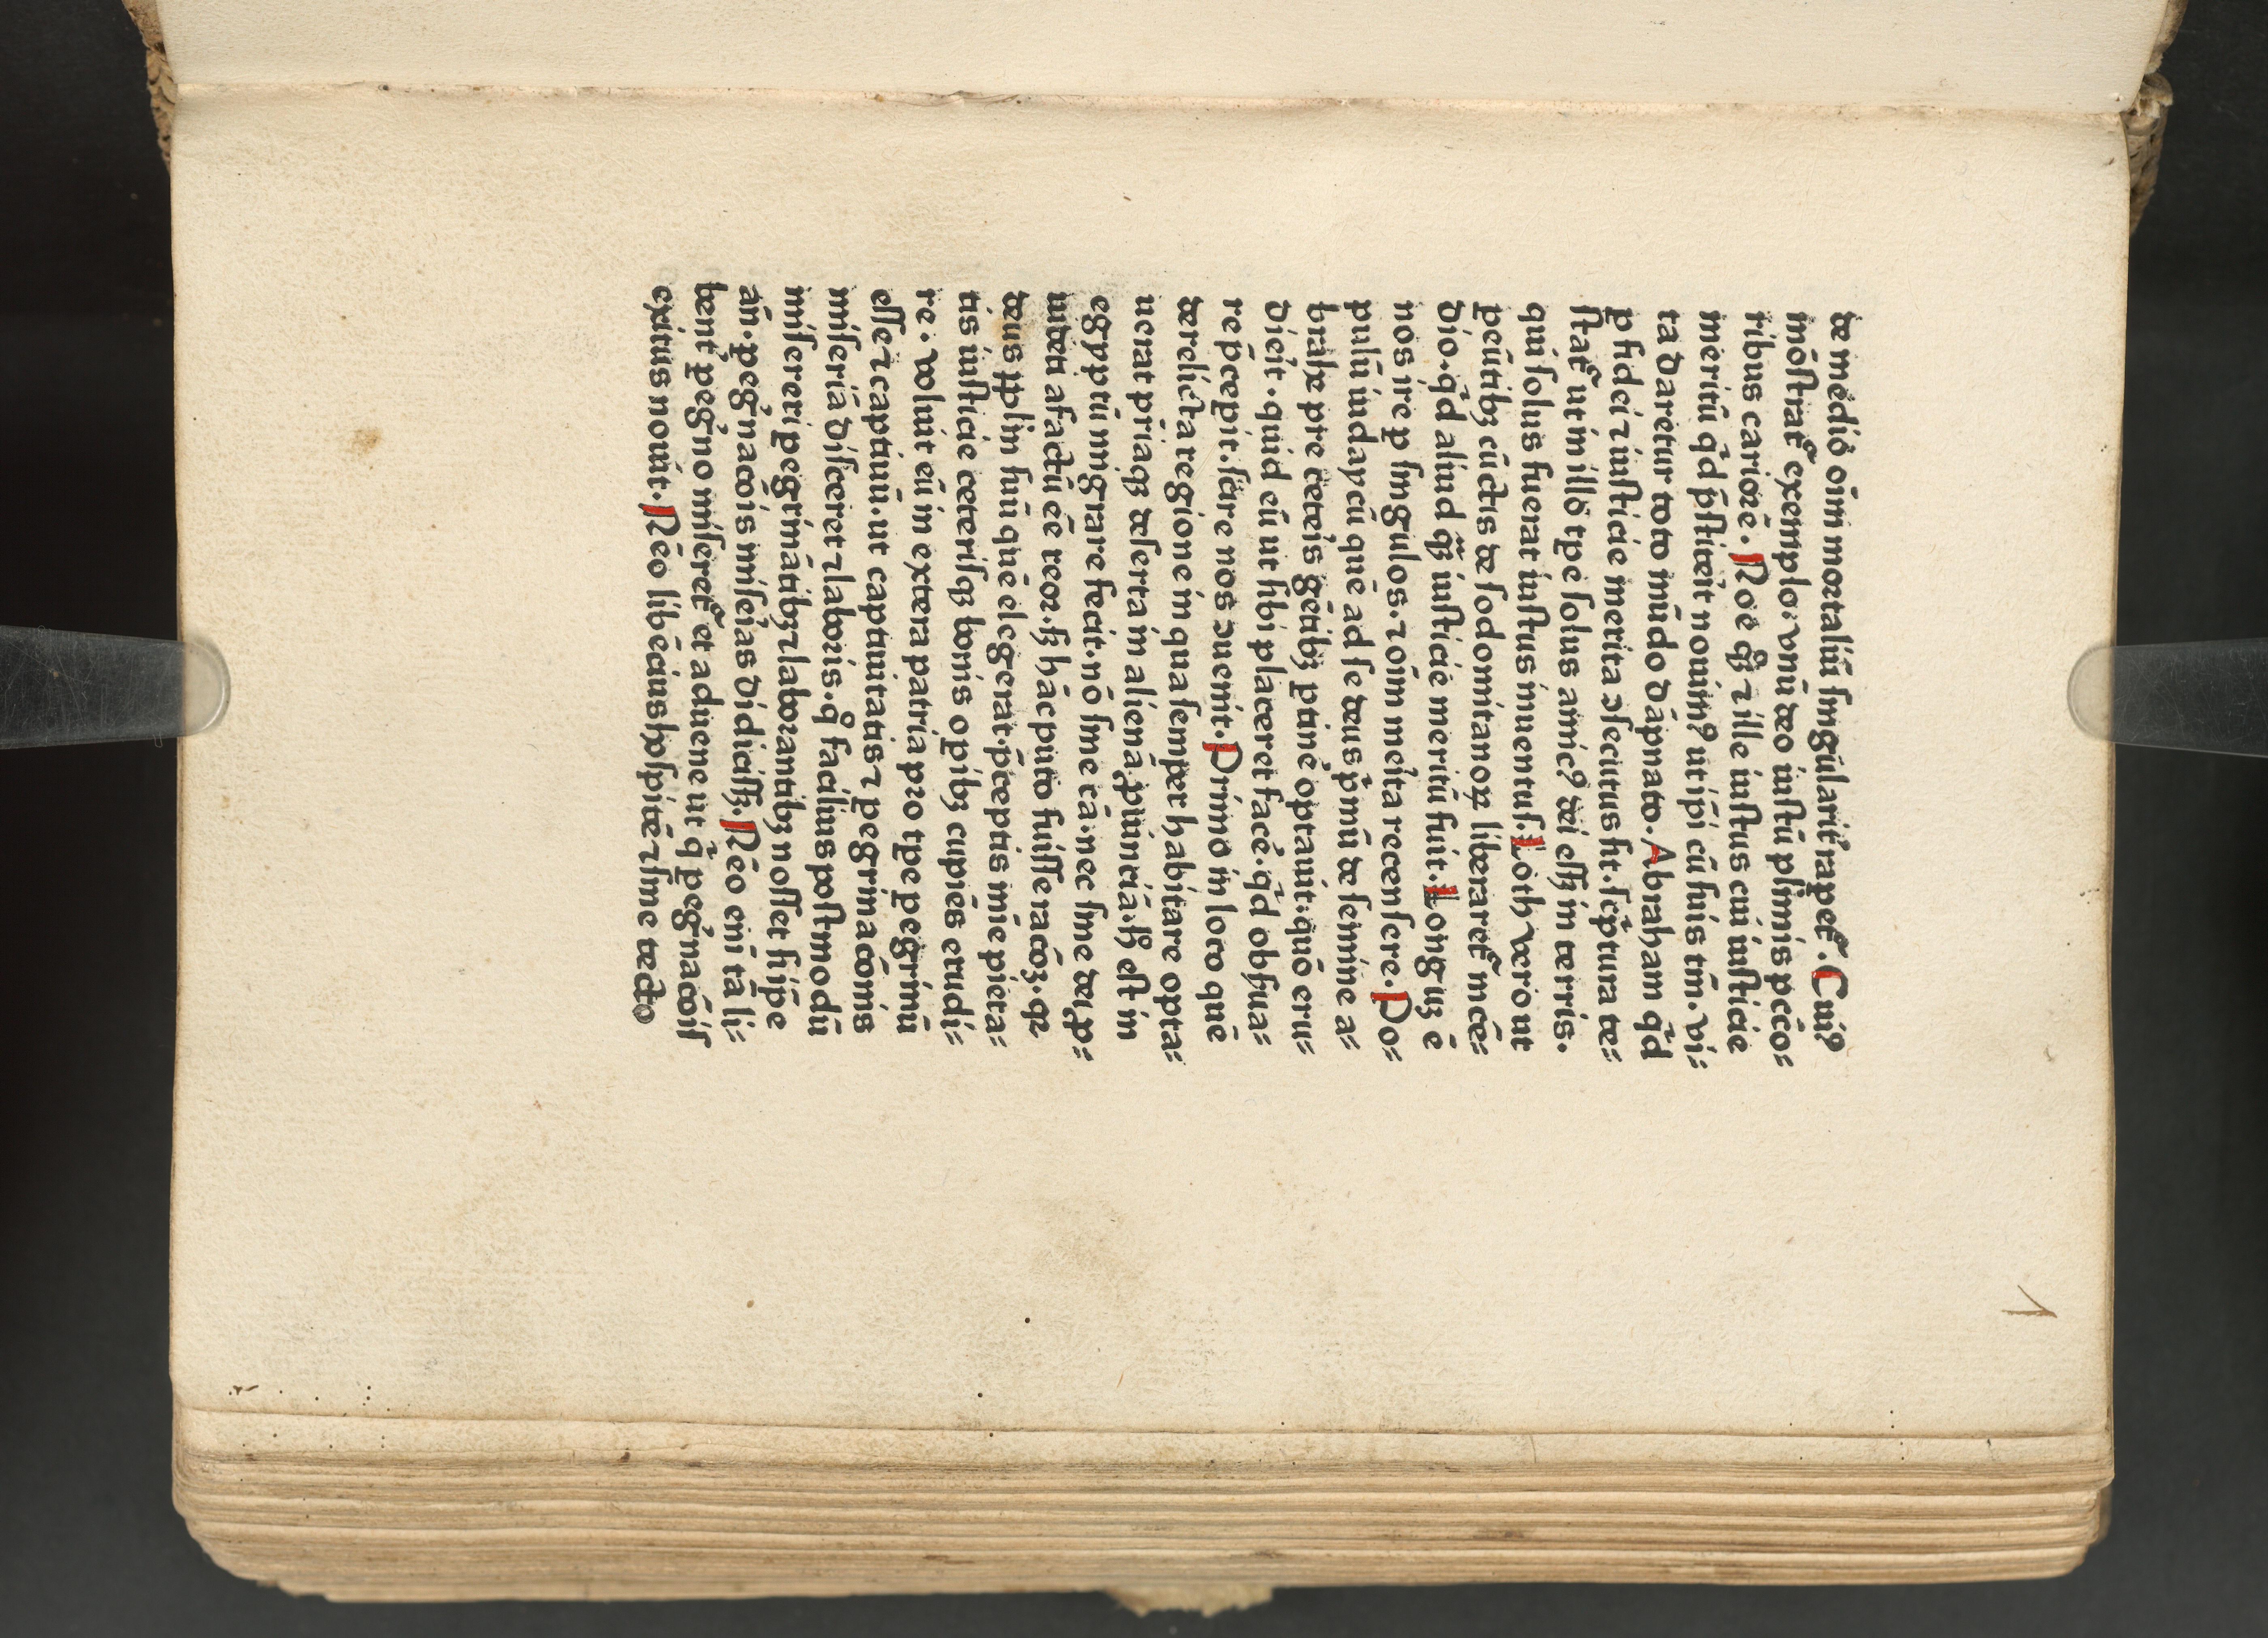 de medio oim mortaliū singularit̄ raperet̄. Cui⁹
mōstrat̄ exemplo. vnū deo iustū plimis pcco⸗
ribus cariorē. Noe q̄ꝫ ⁊ ille iustus cui iusticie
meritū qd̄ p̄sticerit nouim⁹ ut ip̄i cū suis tm̄. vi⸗
ta daretur toto mūdo dāpnato. Abraham qd̄
ꝑ fidei ⁊ iusticie merita ↄsecutus sit. sc̓ptura te⸗
stat̄ ut in illo tp̄e solus amic⁹ dei essꝫ in terris.
qui solus fuerat iustus inuentus. Loth vero ut
peūtibꝫ cūctis de sodomitanoꝝ liberaret̄ incē⸗
dio. qd̄ aliud q̄ꝫ iusticie meritū fuit. Longuꝫ ē
nos ire ꝑ singulos. ⁊ oīm meita recensere. Po⸗
pulū iudaycū quē ad se deus p̓mū de semine a⸗
brahe pre ceteis gētibꝫ ꝑtine̓ optauit. quō eru⸗
dieit. quid eū ut sibi placeret face̓. qd̄ obsꝰua⸗
re p̄cepit. scire nos ↄuenit. Primo in loco quē
derelicta regione in qua semper habitare opta⸗
uerat p̄riaqꝫ deserta in alienā ꝓuinciā. h̄ est in
egyptū migrare fecit. nō sine cā. nec sine diuꝓ⸗
uidētia factū eē reor. sꝫ hāc puto fuisse racōꝫ. qꝛ
deus pplm̄ suū quē elegerat. p̄ceptis mie pieta⸗
tis iusticie ceterisqꝫ bonis opibꝫ cupiēs erudi⸗
re. voluit eū in extera patria pro tpe peg̓rinū
esse ⁊ captiuū. ut captiuitatis ⁊ peg̓rinacōnis
miseriā disceret ⁊ laboris. q̊ facilius postmodū
misereri peg̓rinātibꝫ ⁊ laborantibꝫ nosset si ip̄e
an̄. peg̓nacōis miseias didicissꝫ. Nēo eni tā li⸗
bent̄ peg̓no miseret̄ et aduene ut q̓ peg̓nacōis
exitus nouit. Nēo libēcius hospitē ⁊ sine tecto